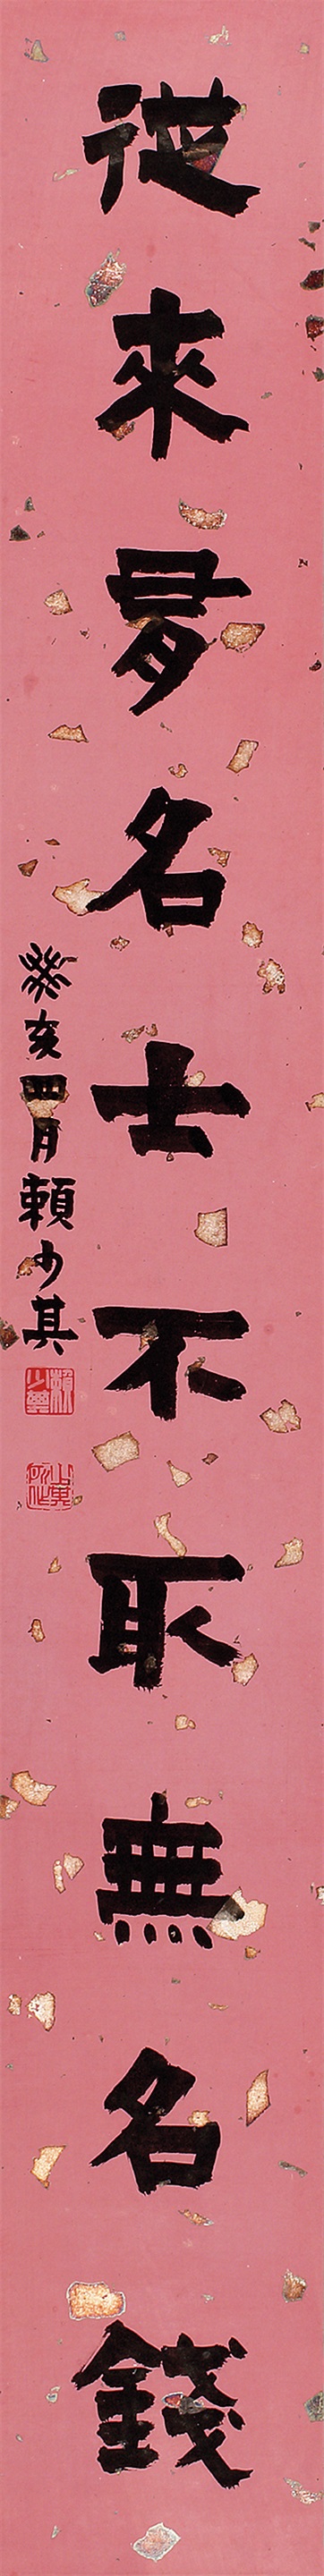 從來名士不取無名錢
癸亥四月賴少其
賴少其